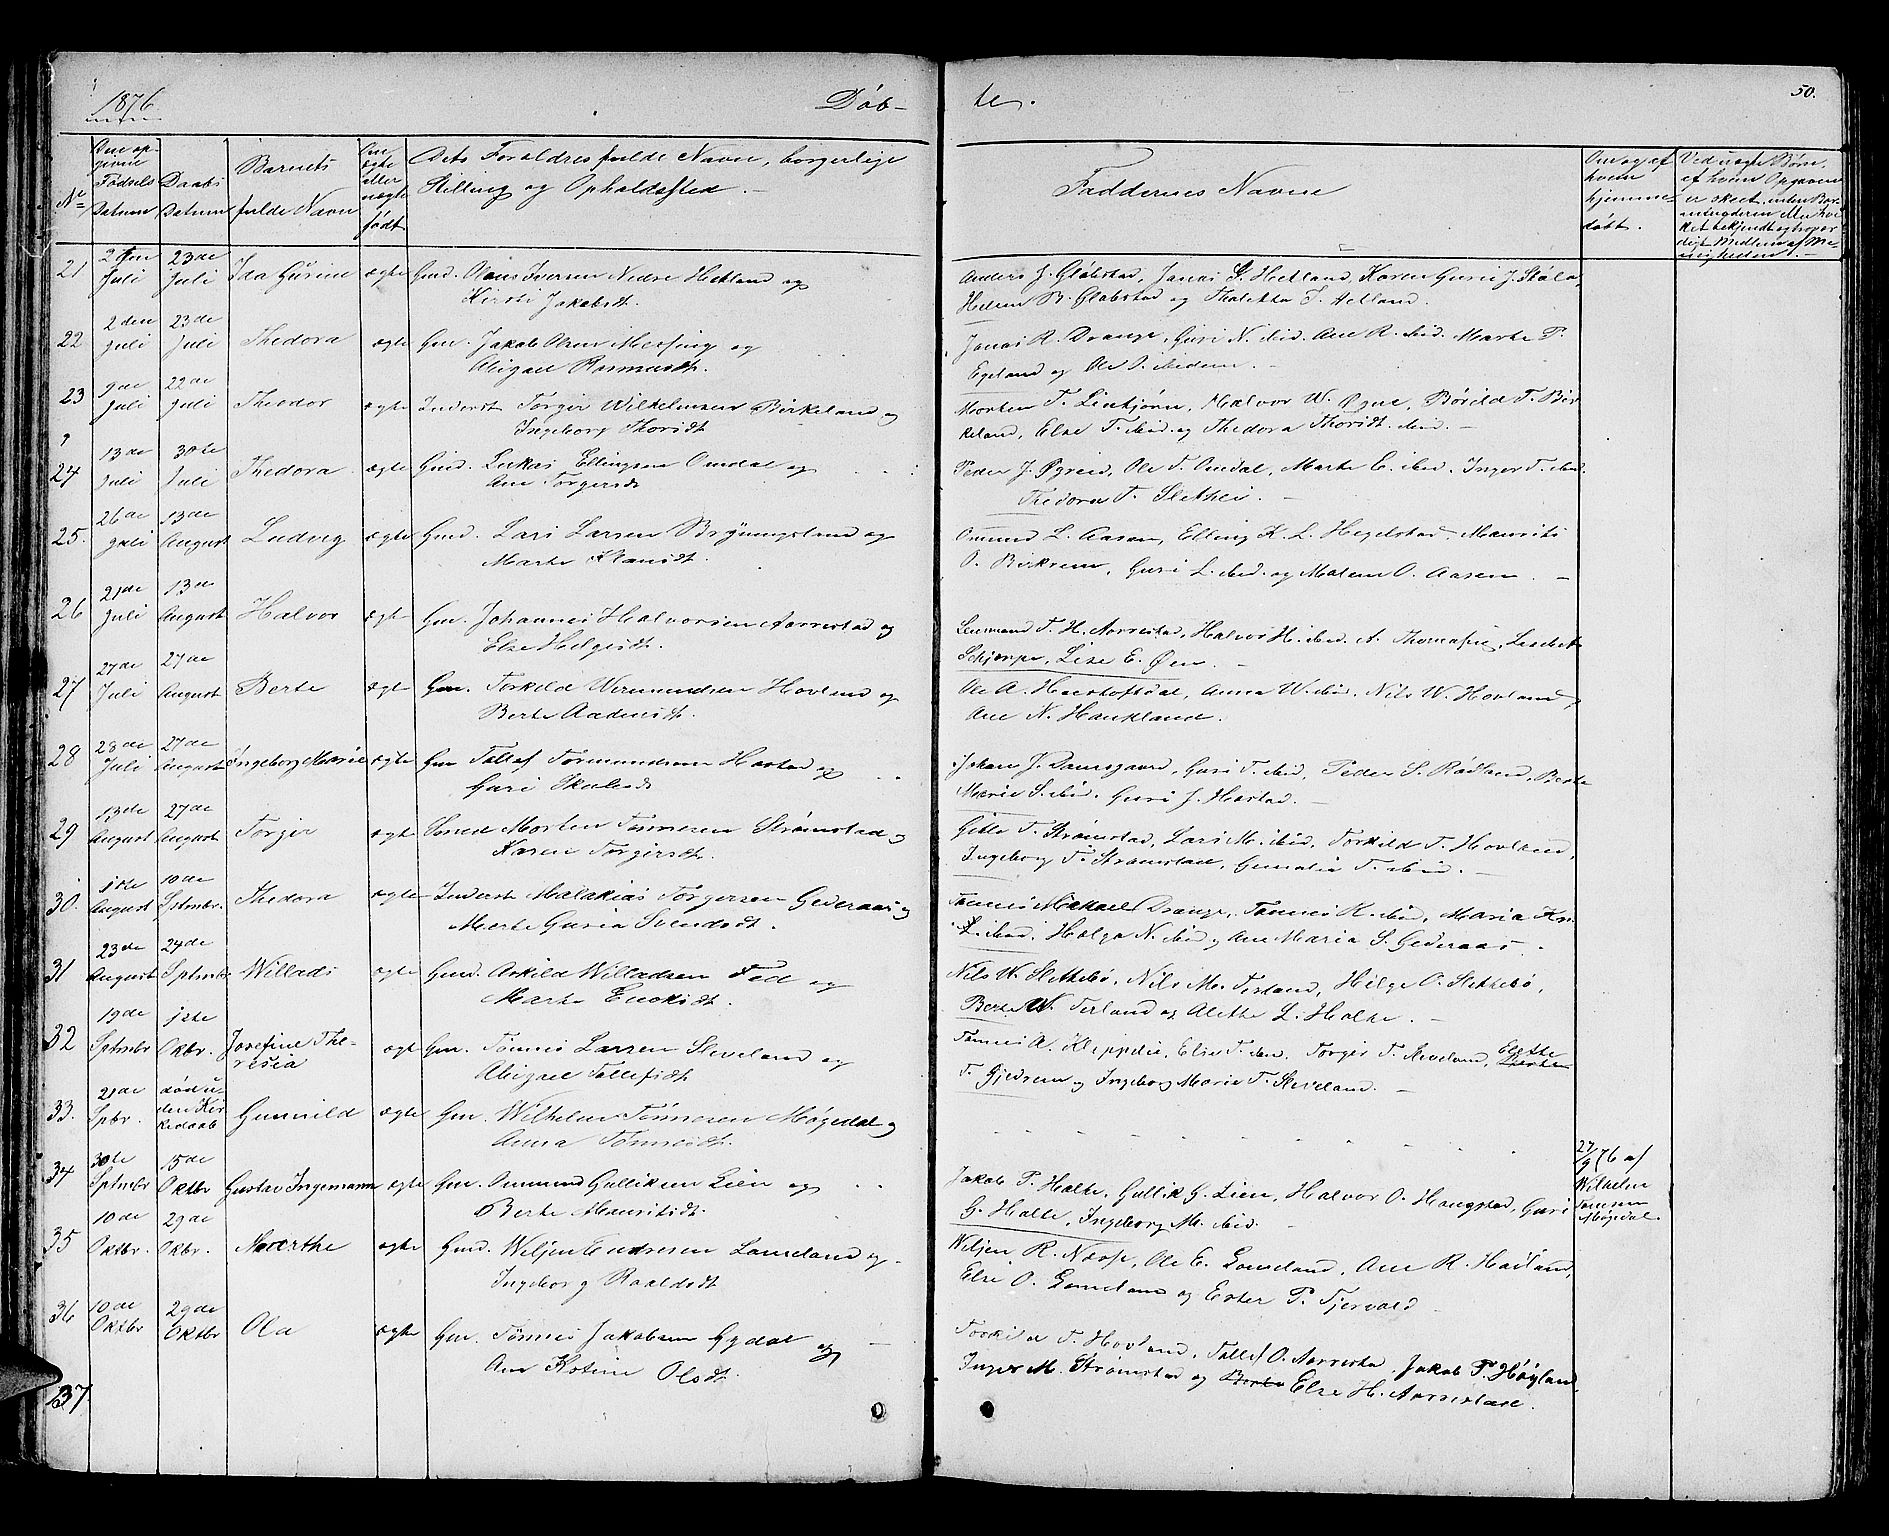 1876.
Døb-
te.
50.
No
Den op-
givne
Fødsels
Datum
Daabs
Datum
Barnets
fulde Navn
Om
ægte
eller
uægte
født
Dets Foraldres fulde Navne, borgerlige
Stilling og Opholdssted. -
Faddernes Navne
Om og af
hvem
hjemme-
døbt.
Ved uægte Børn,
af hvem Opgaven
er skeet
21 Juli 23de Juli Ida Gurine ægte Gmd. Olaus Iversen Nedre Hetland og
Kirsti Jakobsdt.
Anders J. Gløbstad, Jonas S. Hetland, Karen Gurie J. Støle,
Helene B. Gløbstad og Thaletta T. Hetland.
22 2den Juli 23de Juli Thedora ægte Gm. Jakob Olsen Messing og
Abigael Rasmusdt.
Jonas R. Drange, Guri N. ibid. Ane R. ibid. Marte T.
Egeland og Ole O. ibidem. -
23 9de Juli 22de Juli Theodor ægte Inderst Torger Wilhelmsen Birkeland og
Ingeborg Thorsdt.
Morten T. Lintjørn, Halvor W. Øgne, Børild T. Bir
keland, Else T. ibid. og Thedora Thorsdt. ibid. -
24 13de Juli 30te Juli Thedora ægte Gmd. Lukas Ellingsen Omdal og
Ane Torgersdt
Peder J. Øgreid, Ole T. Omdal, Marte E. ibid. Inger T. ibid.
Thedora T. Slethei. -
25. 26de Juli 13de August Ludvig ægte Gmd. Lars Larsen Bryungsland og
Marte Klausdt.
Omund L. Aasen, Elling K. L. Hegelstad, Maurits
O. Birkrem, Guri L. ibid. og Malene O. Aasen. -
26 21de Juli 13de August Halvor ægte Gm. Johannes Halvorsen Aarrestad og
Else Helgesdt.
Lensmand T. H. Aarrestad, Halvor H. ibid. A. Thomassen, Lisebet
Schjerpe, Lise E. Øen. -
27 27de Juli 27de August Berte ægte Gm. Torkild Wermundsen Hovland og
Berte Aadensdt.
Ole A. Hestoftdal, Anna W. ibid. Nils W. Hovland,
Ane N. Haukland.
28 28de Juli 27de August Ingeborg Marie ægte Gm Tollef Tormundsen Hastad og
Guri Skulesdt
Johan J. Damsgaard, Guri T. ibid, Peder S. Rødland, Berte
Marie S. ibid. Guri J. Hæstad. -
29 13de August 27de August Torger ægte Smed Morten Tønnesen Strømstad og
Karen Torgersdt.
Gitle T. Strømstad, Lars M. ibid, Torkild T. Hovland,
Ingeborg T. Strømstad, Gunalia T. ibid. -
30. 1ste August 10de Sptmbr. Thedora ægte Inderst Malakias Torgersen Gederaas og
Marte Guria Svendsdt.
Tønnes Mikael Drange, Tønnes K. ibid, Maria Kr.
L. ibid. Helga N. ibid og Ane Maria S. Gederaas. -
31 23de August 24de Sptmbr Willads ægte Gmd. Askild Willadsen Ted og
Marte Enoksdt.
Nils W. Slettebø, Nils M. Terland, Helge O. Slettebø,
Berte W. Terland og Alette L. Holte. -
32 19de Sptmbr 1ste Okbr. Josefine The-
resia ægte Gm. Tønnes Larsen Sleveland og
Abigael Tollefsdt.
Tønnes A. Kleppelie, Else T. ibid, Torger T. Sleveland,
T. Gjedrem og Ingeborg Marie T. Sleveland. -
33. 21de Spbr. død u-
den Kir
kedaab Gunnild ægte Gm. Wilhelm Tønnesen Møgedal og
Anna Tønnesdt.
27/9 76 af
Wilhelm
Tønnesen
Møgedal.
34 30te Sptmbr 15de Oktbr Gustav Ingemann ægte Gm. Ommund Gulliksen Lien og
Berte Mauritsdt.
Jakob P. Holte, Gullik G. Lien, Halvor O. Haugstad, Guri
G. Holte, Ingeborg M. ibid. -
35 10de Oktbr. 29de Okbr. Marthe ægte Gmd. Weljen Endresen Lomeland og
Ingeborg Roaldsdt
Weljen R. Næse, Ole E. Lomeland, Ane R. Høiland,
Else O. Lomeland og Ester P. Tjersvold
36 10de Oktbr 29de Oktbr Ola ægte Gm. Tønnes Jakobsen Gydal og
Ane Kotine Olsdt.
Torkild T. Hovland, Tollef O. Aarrestad, Jakob T. Høyland,
Inger M. Strømstad og Else H. Aarrestad.
37